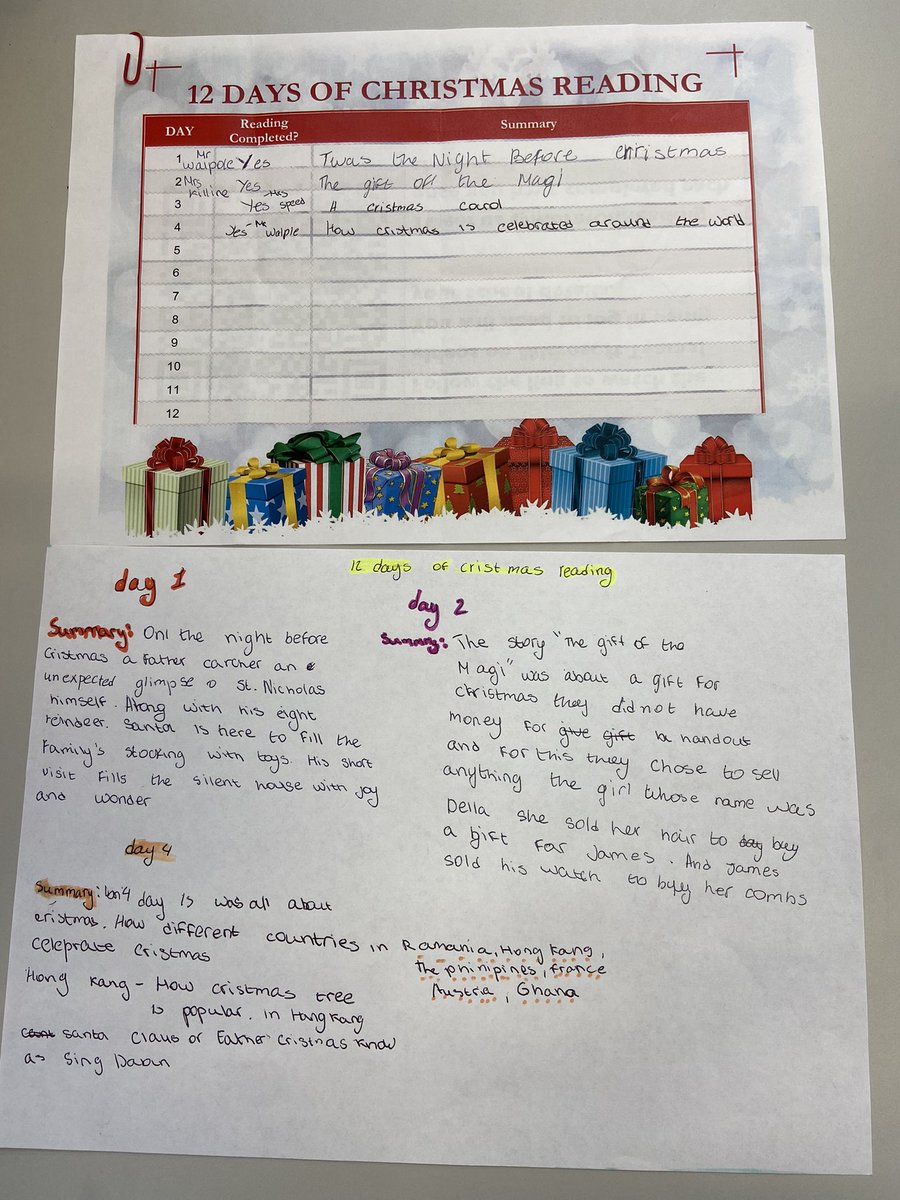 12 DAYS OF CHRISTMAS READING
DAY Reading Completed? Summary
1 Mr Walpole Yes Twas the Night Before christmas
2 Mrs Killine Yes The gift off the Magi
3 Yes Mrs speed A cristmas carol
4 Yes Mr Walple How cristmas is celebrated around the world
5
6
7
8
9
10
11
12
12 days of cristmas reading
day 1
Summary: Onl the night before
Cristmas a Father carcher an
unexpected glimpse o St. Nicholas
himself. Along with his eight
reindeer. Santa is here to fill the
Family's stocking with toys. His short
visit fills the silent house with joy
and wonder
day 2
Summary: The story "The gift of the
Magi" was about a gift for
christmas they did not have
money for give gift handout
and for this they chose to sell
anything the girl whose name was
Della she sold her hair to buy
a gift For James. And James
sold his watch to byy her combs
day 4
Summary: day is was all about
cristmas. How different countries in Ramania, Hong Kang,
celebrate cristmas the phinipines, france
Austria, Ghana
Hong Kang - How cristmas tree
is popular. in Hang Kang
santa claus or Father cristmas know
as Sing